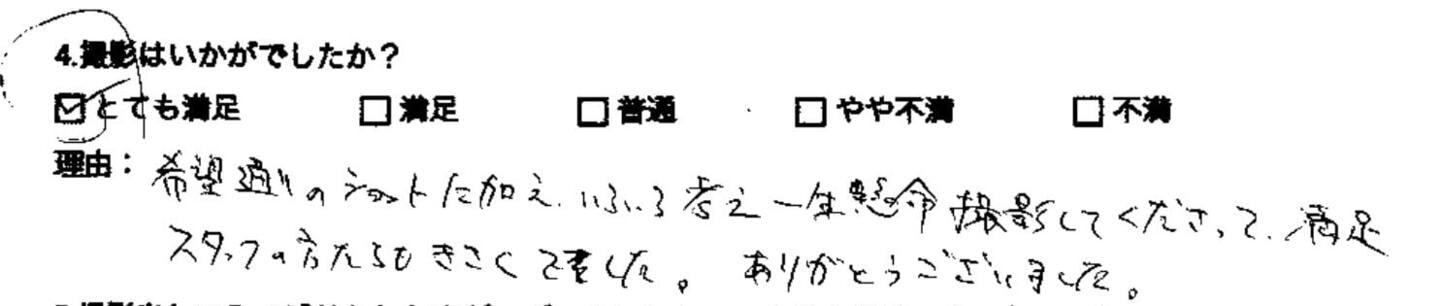 4.撮影はいかがでしたか？
☑とても満足 □満足 □普通 □やや不満 □不満
理由：希望通りのショットに加え、いろいろ考え一生懸命撮影してくださって、満足
スタッフの方たちも きさくで した。ありがとうございました。